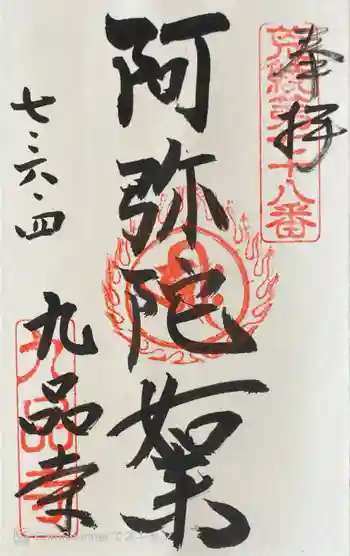 奉拝
阿弥陀如来
七・六・四
九品寺
九品寺